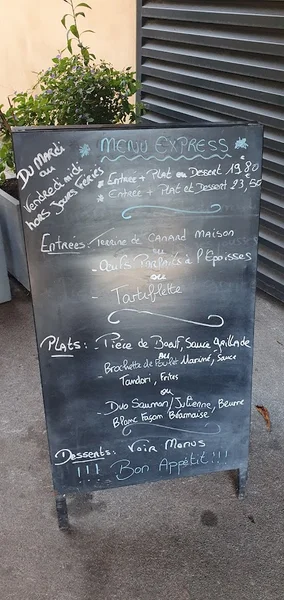 MENU EXPRESS
Du Mardi
au
Vendredi midi
hors Jours Fériés
* Entree + Plat ou Dessert 19,80
et
* Entree + Plat et Dessert 23,50
Entrées: - Terrine de CANARD MAISON
ou
- Oeufs Parfaits à l'Epoisses
ou
- Tartiflette
Plats: - Pièce de Boeuf, Sauce
ou
- Brochette de Poulet Mariné, Sauce
Tandori, Frites
ou
- Duo Saumon/Julienne, Beurre
Blanc Façon Béarnaise
Desserts: Voir Menus
!!! Bon Appétit!!!